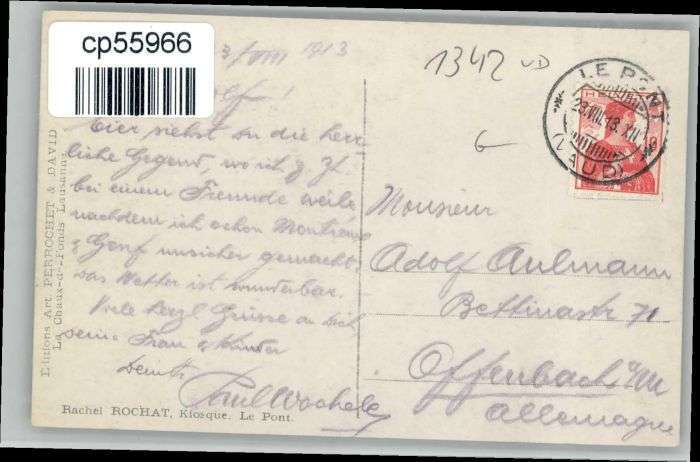 cp55966
1913
1342 VD
LE PONT
(VAUD)
Hier siehst du die herr-
liche Gegend, wo ich z. Zt.
bei einem Freunde weile,
nachdem ich schon Montreux
& Genf unsicher gemacht.
Das Wetter ist wunderbar.
Viele herzl Grüsse an Dich
deine Frau & Kinder
Paul
Monsieur
Adolf Aulmann
Bettinastr 71
Offenbach a/M
Allemagne
Editions Art. PERROCHET & DAVID
La Chaux-de-Fonds Lausanne
Rachel ROCHAT, Kiosque. Le Pont.